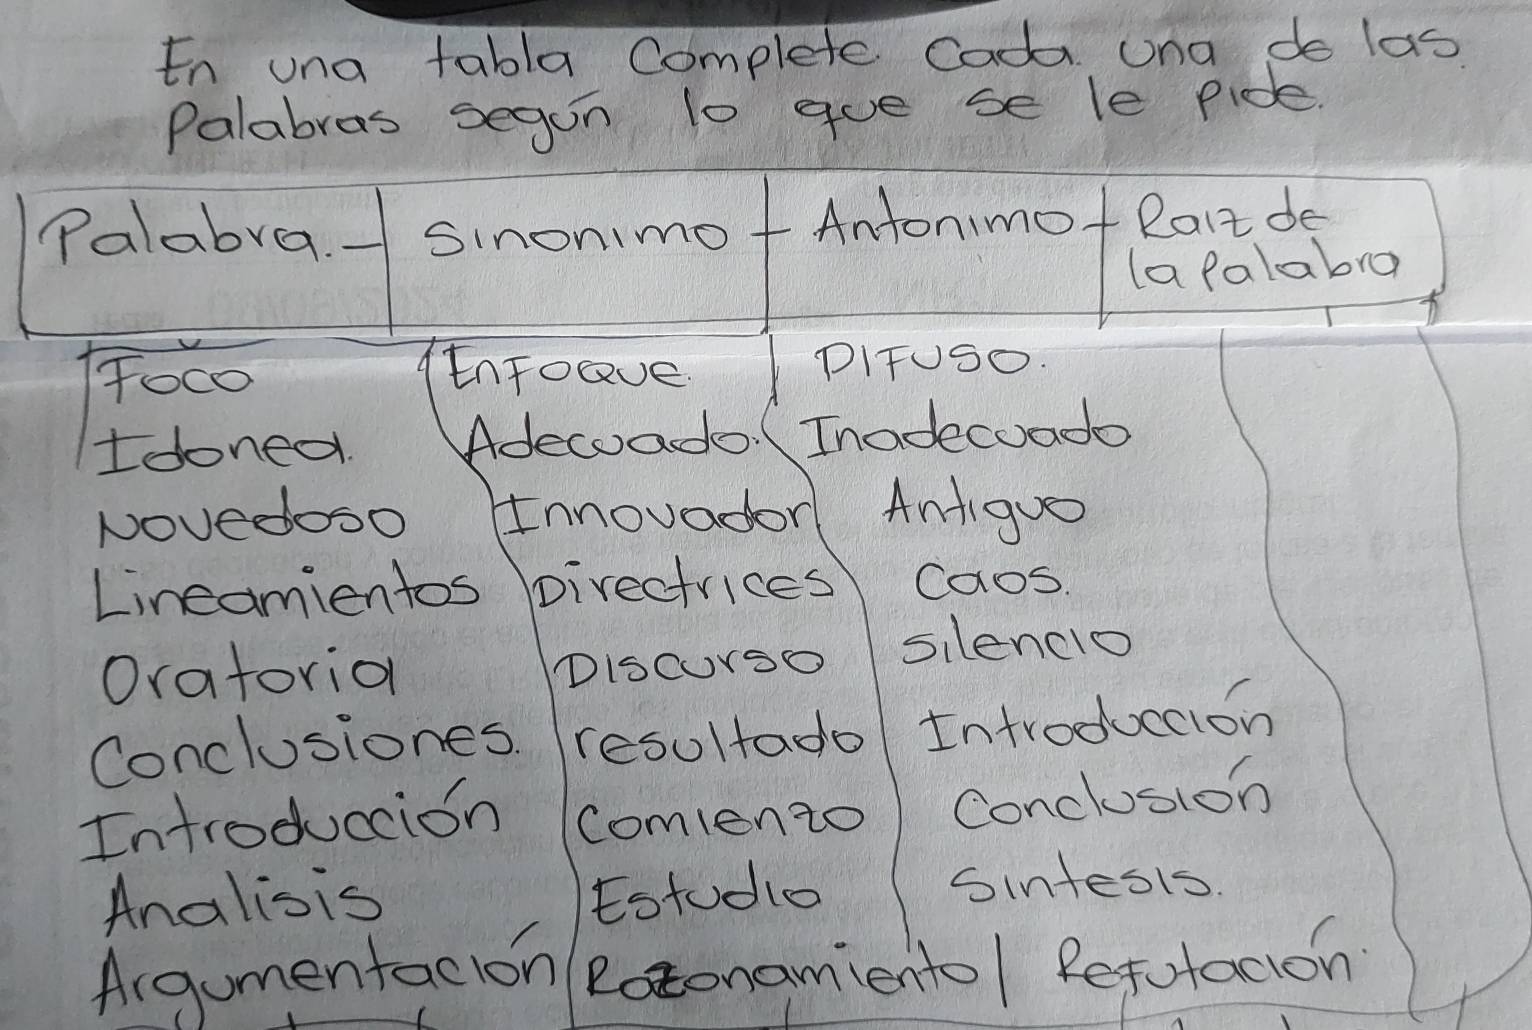 En una tabla Complete Cada una de las.
Palabras según lo que se le pide.
Palabra. - Sinonimo - Antonimo - Raiz de
la Palabra
Foco Enfoque. Difuso.
Idonea. Adecuado. Inadecuado
Novedoso Innovador Antiguo
Lineamientos Directrices Caos.
Oratoria Discurso Silencio
Conclusiones. resultado Introducción
Introducción Comienzo Conclusión
Analisis Estudio Sintesis.
Argumentación Razonamiento Refutación.